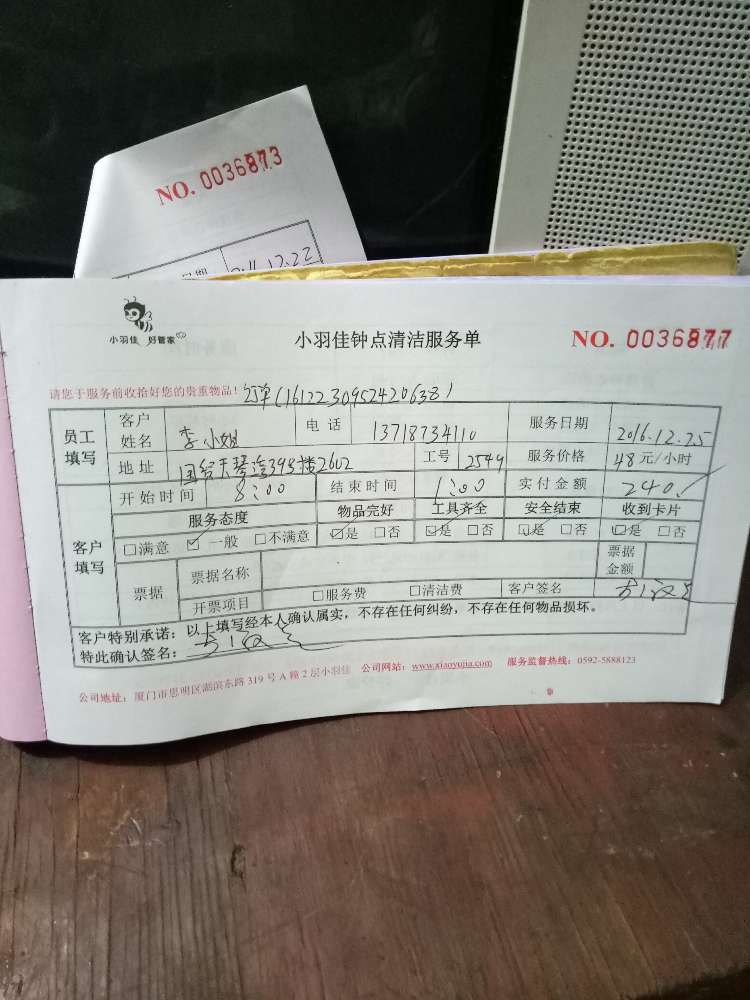 NO. 0036873
日期 2016.12.22
小羽佳 好管家
小羽佳钟点清洁服务单
NO. 0036877
请您于服务前收拾好您的贵重物品! 订单(1612230952420638)
员工填写 客户姓名 李小姐 电话 13718734110 服务日期 2016.12.25
地址 国贸天琴湾39号楼2602 工号 2549 服务价格 48元/小时
客户填写 开始时间 8:00 结束时间 1:00 实付金额 240.
服务态度 物品完好 工具齐全 安全结束 收到卡片
□满意 ☑一般 □不满意 ☑是 □否 ☑是 □否 ☑是 □否 ☑是 □否
票据 票据名称 票据金额
开票项目 □服务费 □清洁费 客户签名
客户特别承诺:以上填写经本人确认属实,不存在任何纠纷,不存在任何物品损坏。
特此确认签名:
公司地址:厦门市思明区湖滨东路319号A幢2层小羽佳 公司网站:www.xiaoyujia.com 服务监督热线:0592-5888123